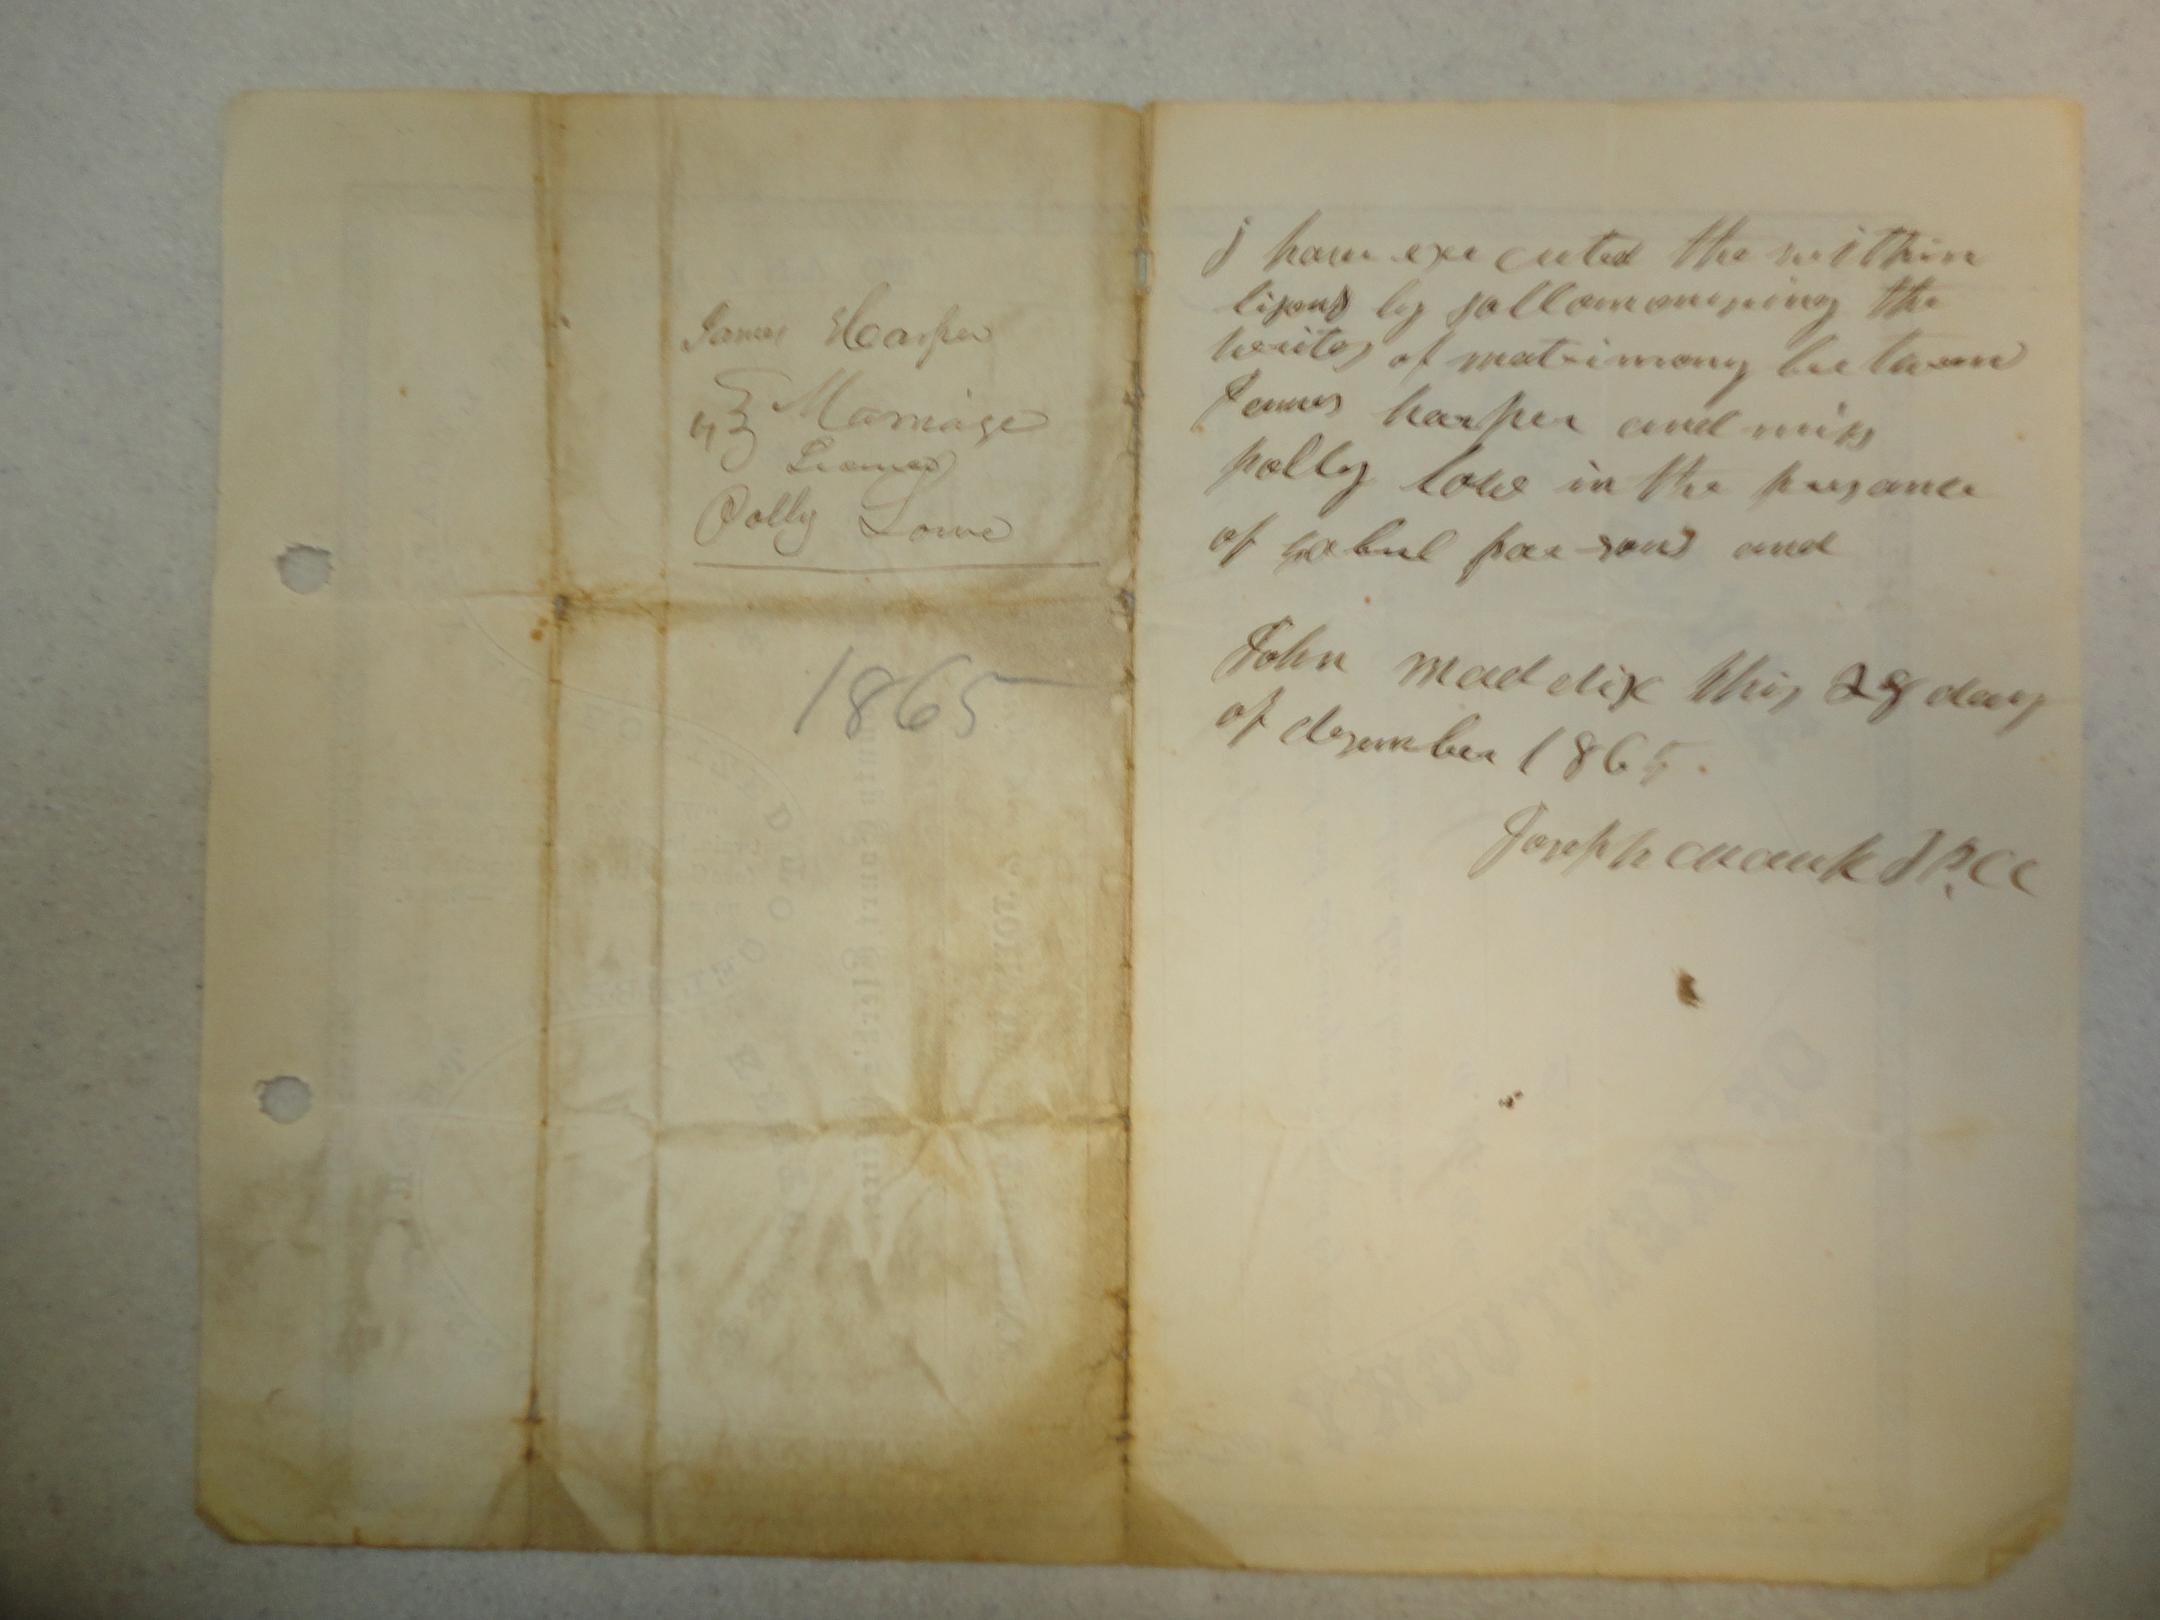 James Harper
Marriage
License
Polly Lowe
1865
I have executed the within
lisons by sollomonising the
writes of matrimony between
James harper and miss
polly lowe in the presance
of parsons and
John maddix this 28 day
of desember 1865.
Joseph JPCC
KENTUCKY